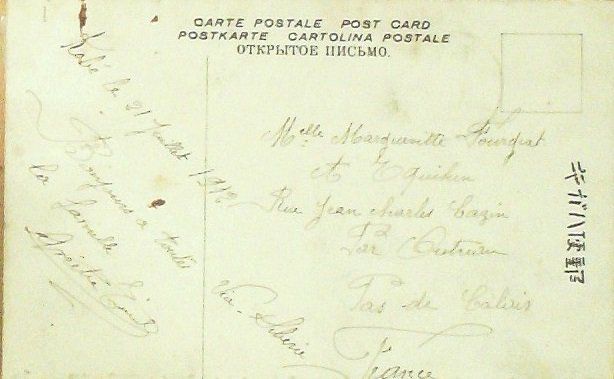 CARTE POSTALE POST CARD
POSTKARTE CARTOLINA POSTALE
ОТКРЫТОЕ ПИСЬМО.
Kobé le 21 Juillet 1912
Bonjours a toutes
la famille
Melle Marguerite Fourdrat
A Equihen
Rue Jean Charles Cazin
Par Outreau
Pas de Calais
France
Via Sibérie